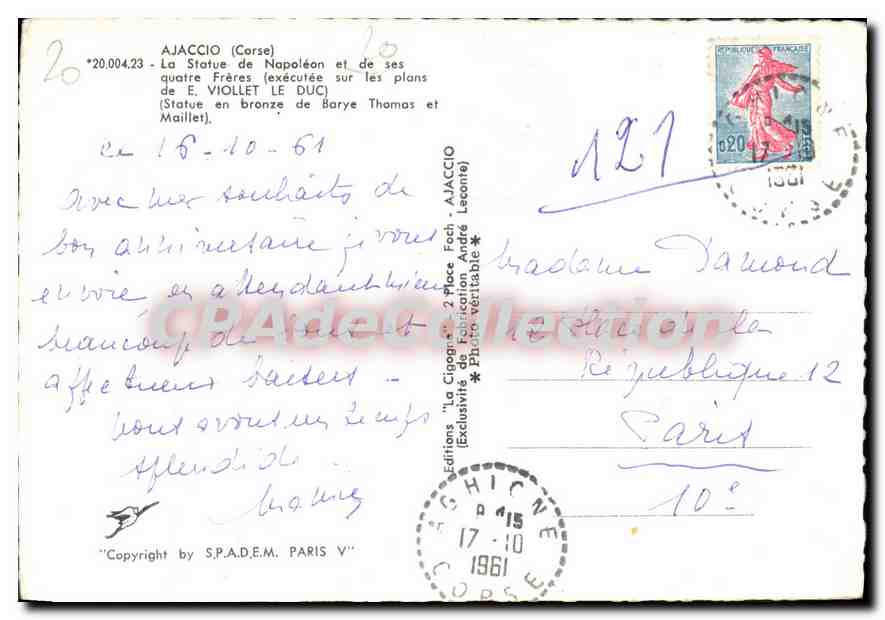 20
20
AJACCIO (Corse)
*20.004.23 - La Statue de Napoléon et de ses
quatre Frères (exécutée sur les plans
de E. VIOLLET LE DUC)
(Statue en bronze de Barye Thomas et
Maillet).
ce 16-10-61
avec mes souhaits de
bon anniversaire je vous
envoie en attendant
beaucoup de et
affectueux baisers -
nous avons un temps
splendide.
"Copyright by S.P.A.D.E.M. PARIS V"
Editions "La Cigogne" - 2 Place Foch - AJACCIO
(Exclusivité de Fabrication André Leconte)
* Photo véritable *
REPUBLIQUE FRANÇAISE
0,20
POSTES
17 -10
1961
CORSE
121
Madame Damond
12 Place de la
République 12
Paris
10e
GHIGNE
17 -10
1961
CORSE
CPAdeCollection